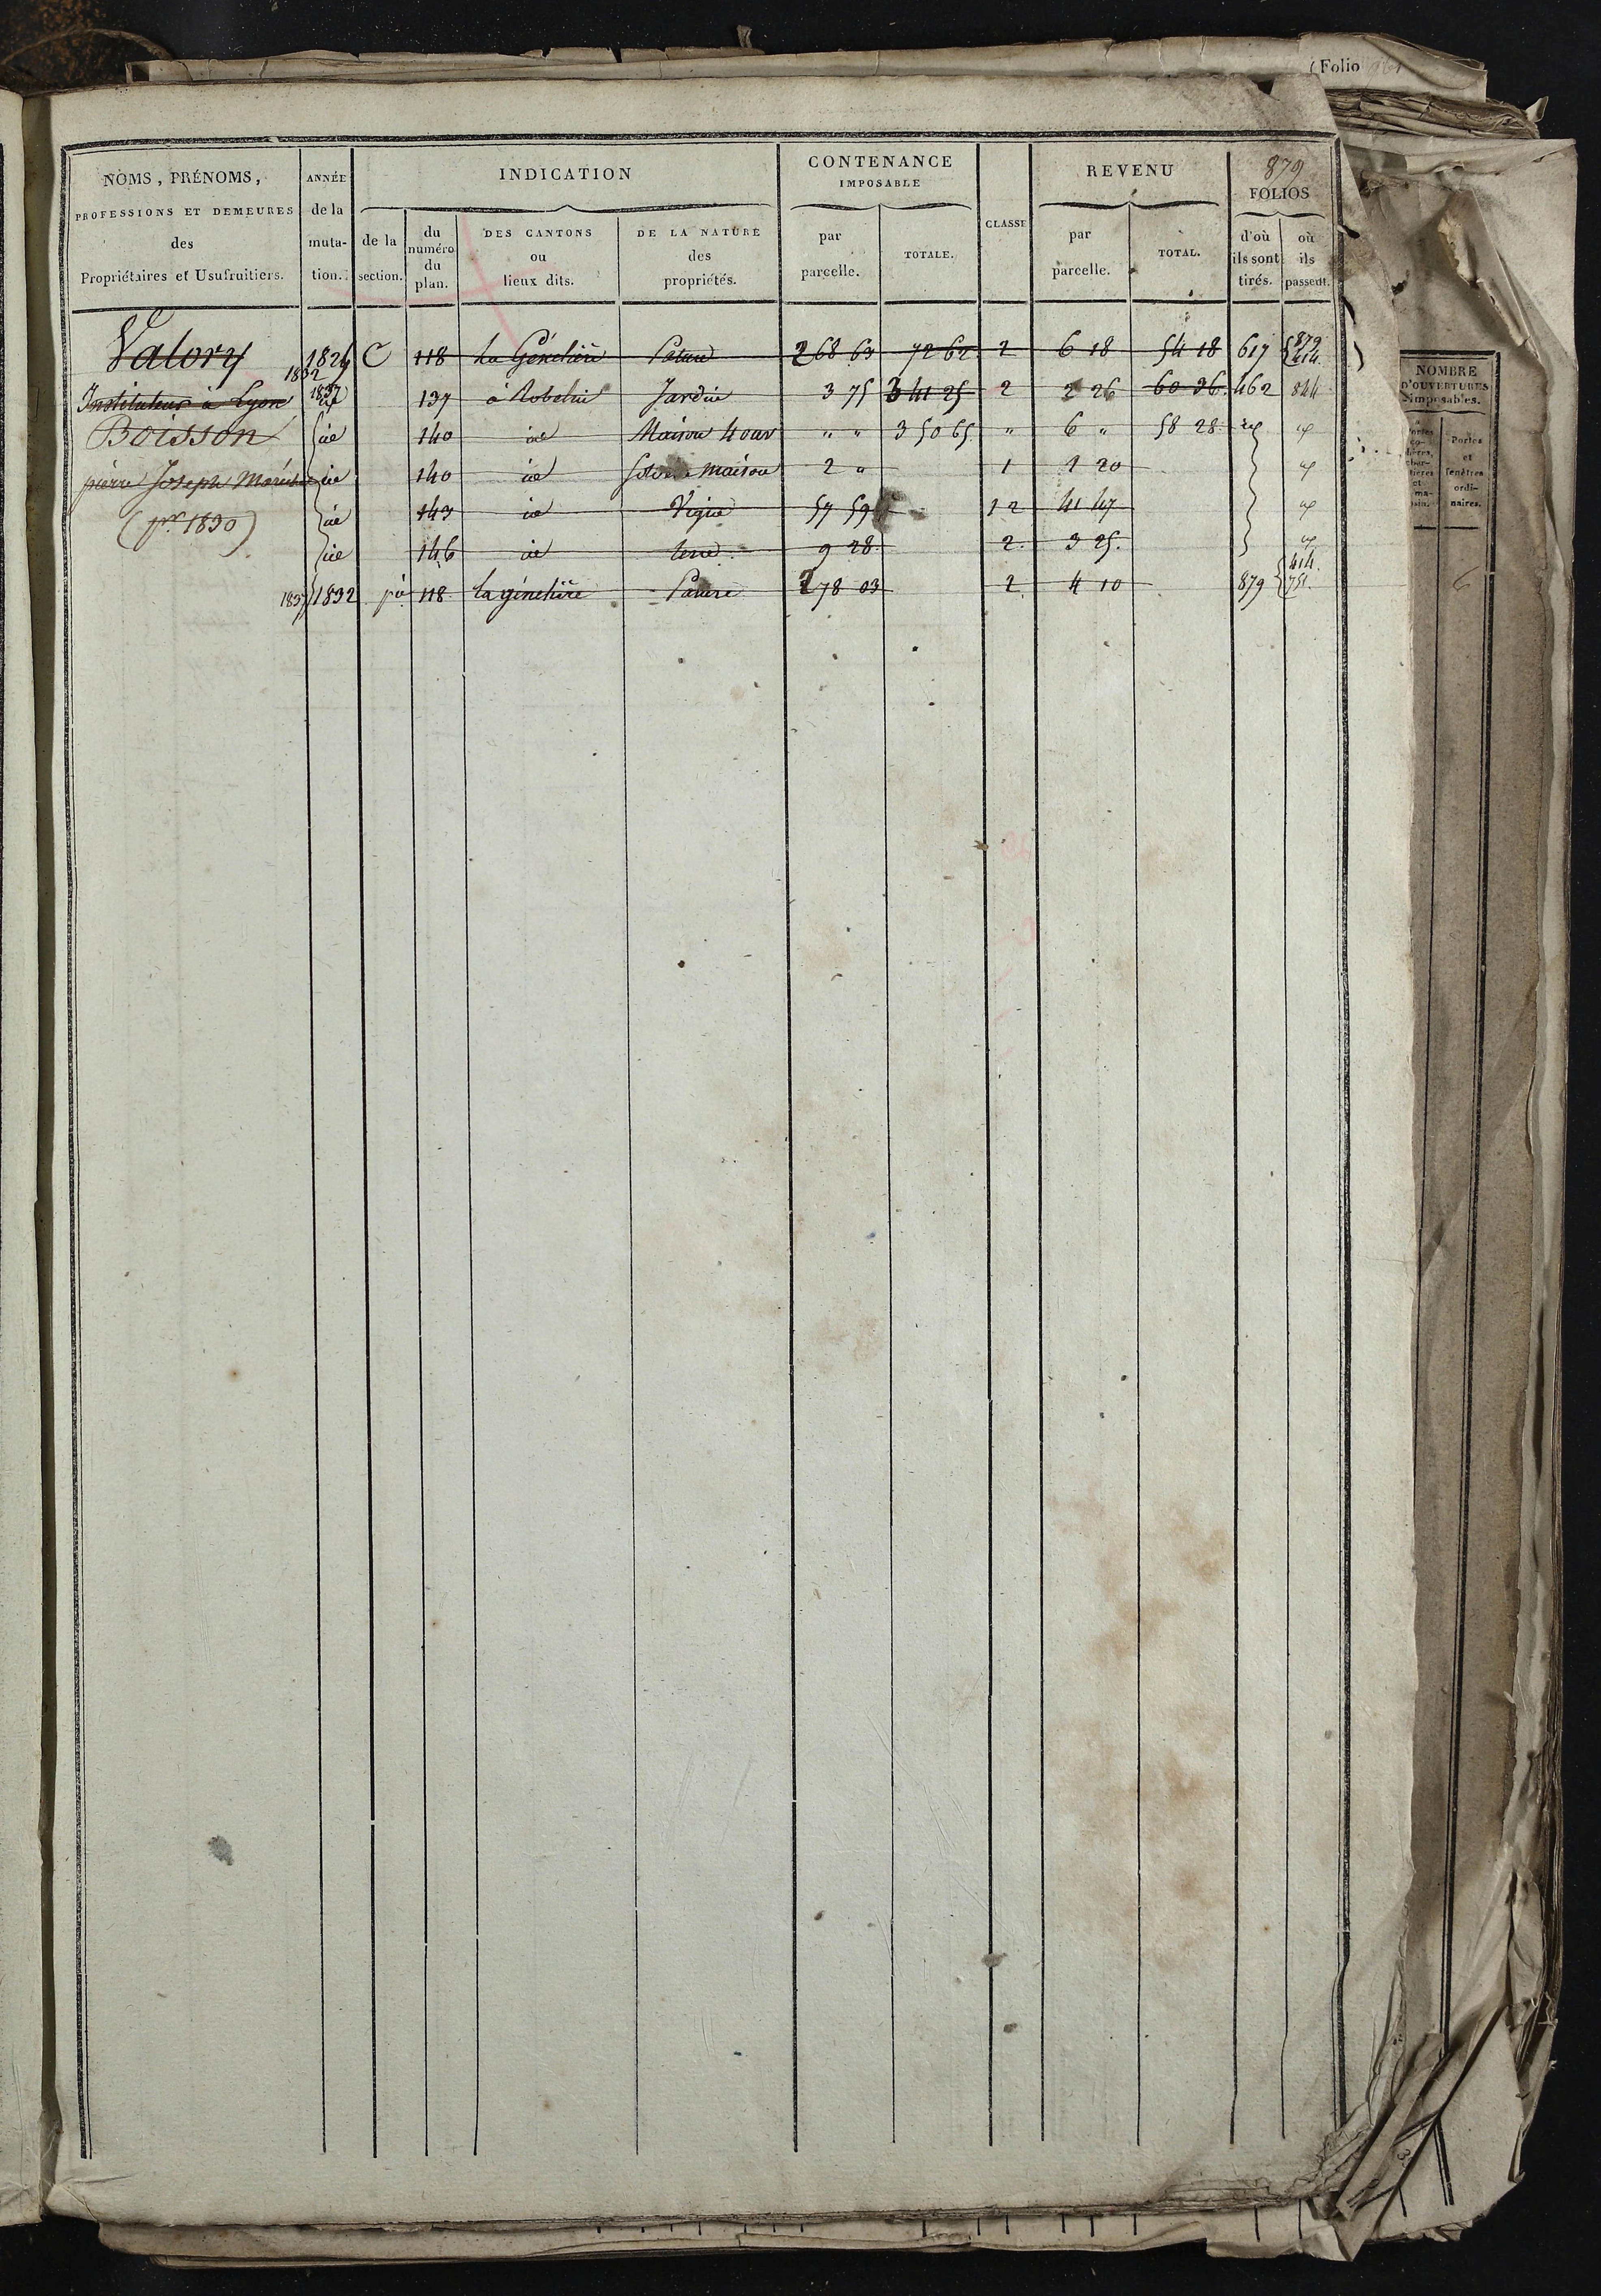 (Folio
879
NOMS, PRÉNOMS,
PROFESSIONS ET DEMEURES
des
Propriétaires et Usufruitiers.
ANNÉE
de la
muta-
tion.
INDICATION
de la
section.
du
numéro
du
plan.
DES CANTONS
ou
lieux dits.
DE LA NATURE
des
propriétés.
CONTENANCE
IMPOSABLE
par
parcelle.
TOTALE.
CLASSE
REVENU
par
parcelle.
TOTAL.
FOLIOS
d'où
ils sont
tirés.
où
ils
passent.
Valory 1832 1829 C 118 La Génetière Pature 2 68 63 72 62 2 6 18 54 18 617 879 414
Instituteur à Lyon 1837 137 à Robelin Jardin 3 75 3 41 25 2 2 26 60 36 462 844
Boisson id 140 id Maison 4 ouv " " 3 50 65 " 6 " 58 28
pierre Joseph id 140 id Sol de maison 2 " 1 1 20
(pr 1830) id 143 id Vigne 57 59 1 2 41 47
id 146 id terre 9 28 2 3 25
1837 1832 118 la génetière Pature 2 78 03 2 4 10 879 414 751
NOMBRE
D'OUVERTURES
imposables.
Portes
et
fenêtres
ordi-
naires.
6